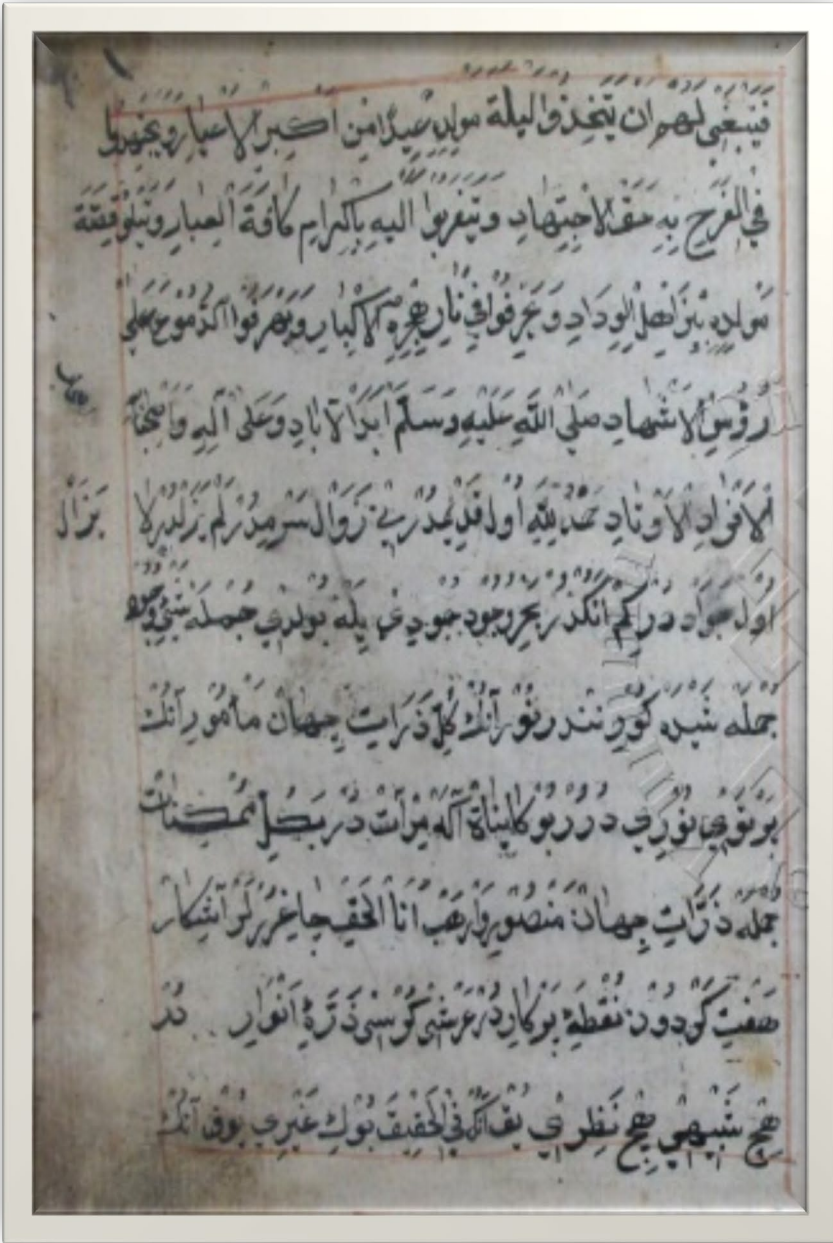 فَيَنْبَغِي لَهُمْ اَنْ يَتَّخِذُوا لَيْلَةَ مَوْلِدِهِ عِيدًا مِنْ اَكْبَرِ الْاَعْيَادِ وَيَجْتَهِدُوا
فِي الْفَرَحِ بِهِ حَقَّ الْاِجْتِهَادِ وَيَتَقَرَّبُوا اِلَيْهِ بِاِكْرَامِ كَافَّةِ الْعِبَادِ وَيَتْلُو قِصَّةَ
مَوْلِدِهِ بَيْنَ اَهْلِ الْوِدَادِ وَ فِي نَارِ هَجْرِهِ الْاَكْبَادِ وَ الدُّمُوعَ عَلَى
رُؤُسِ الْاَشْهَادِ صَلَّي اللّٰهُ عَلَيْهِ وَسَلَّمَ اَبَدَ الْاٰبَادِ وَعَلَى اٰلِهِ وَاَصْحَابِهِ
الْاَفْرَادِ الْاَوْتَادِ حَمْدُ لِلّٰهِ اُول قَدِيمْدُرْ بِي زَوَالْ سَرْمَدْدُرْ لَمْ يَزَلْدُرْ لَا يَزَالْ
اُولْ جَوَادْدُرْ كِمْ اَنْكْدُرْ بَحْرِ وُجُودْ جُودِي يِلَهْ بُولْدِي جُمْلَهْ شَيْ وُجُودْ
جُمْلَهْ شَيْدَهْ كُورِنَنْدُرْ نُورْ آنُكْ كُلِّ ذَرَّاتِ جِهَانْ مَأْمُورْ آنُكْ
پَرْتَوِي نُورِي دُرُرْ بُو كَائِنَاةْ اَكَهْ مِرْاٰتْ دُرْ بَكُلِّ مُمْكِنَاتْ
جُمْلَهْ ذَرَّاتِ جِهَانْ مَنْصُورِوَارْ هَپْ اَنَا الْحَقْ چَاغْرُرْلَرْ آشِكَارْ
هَفْتِ كَرْدُونْ نُقْطَهِٔ پَرْكَارِ دُرْ عَرْشِ كُرْسِي ذَرَّهِٔ اَنْوَارِ دُرْ
هِيچْ شَبِيهِي هِيچْ نَظِيرِي يُوقْ اَكَهْ فِي الْحَقِيقَهْ بُولْكِ غَيْرِي يُوقْ آنُكْ